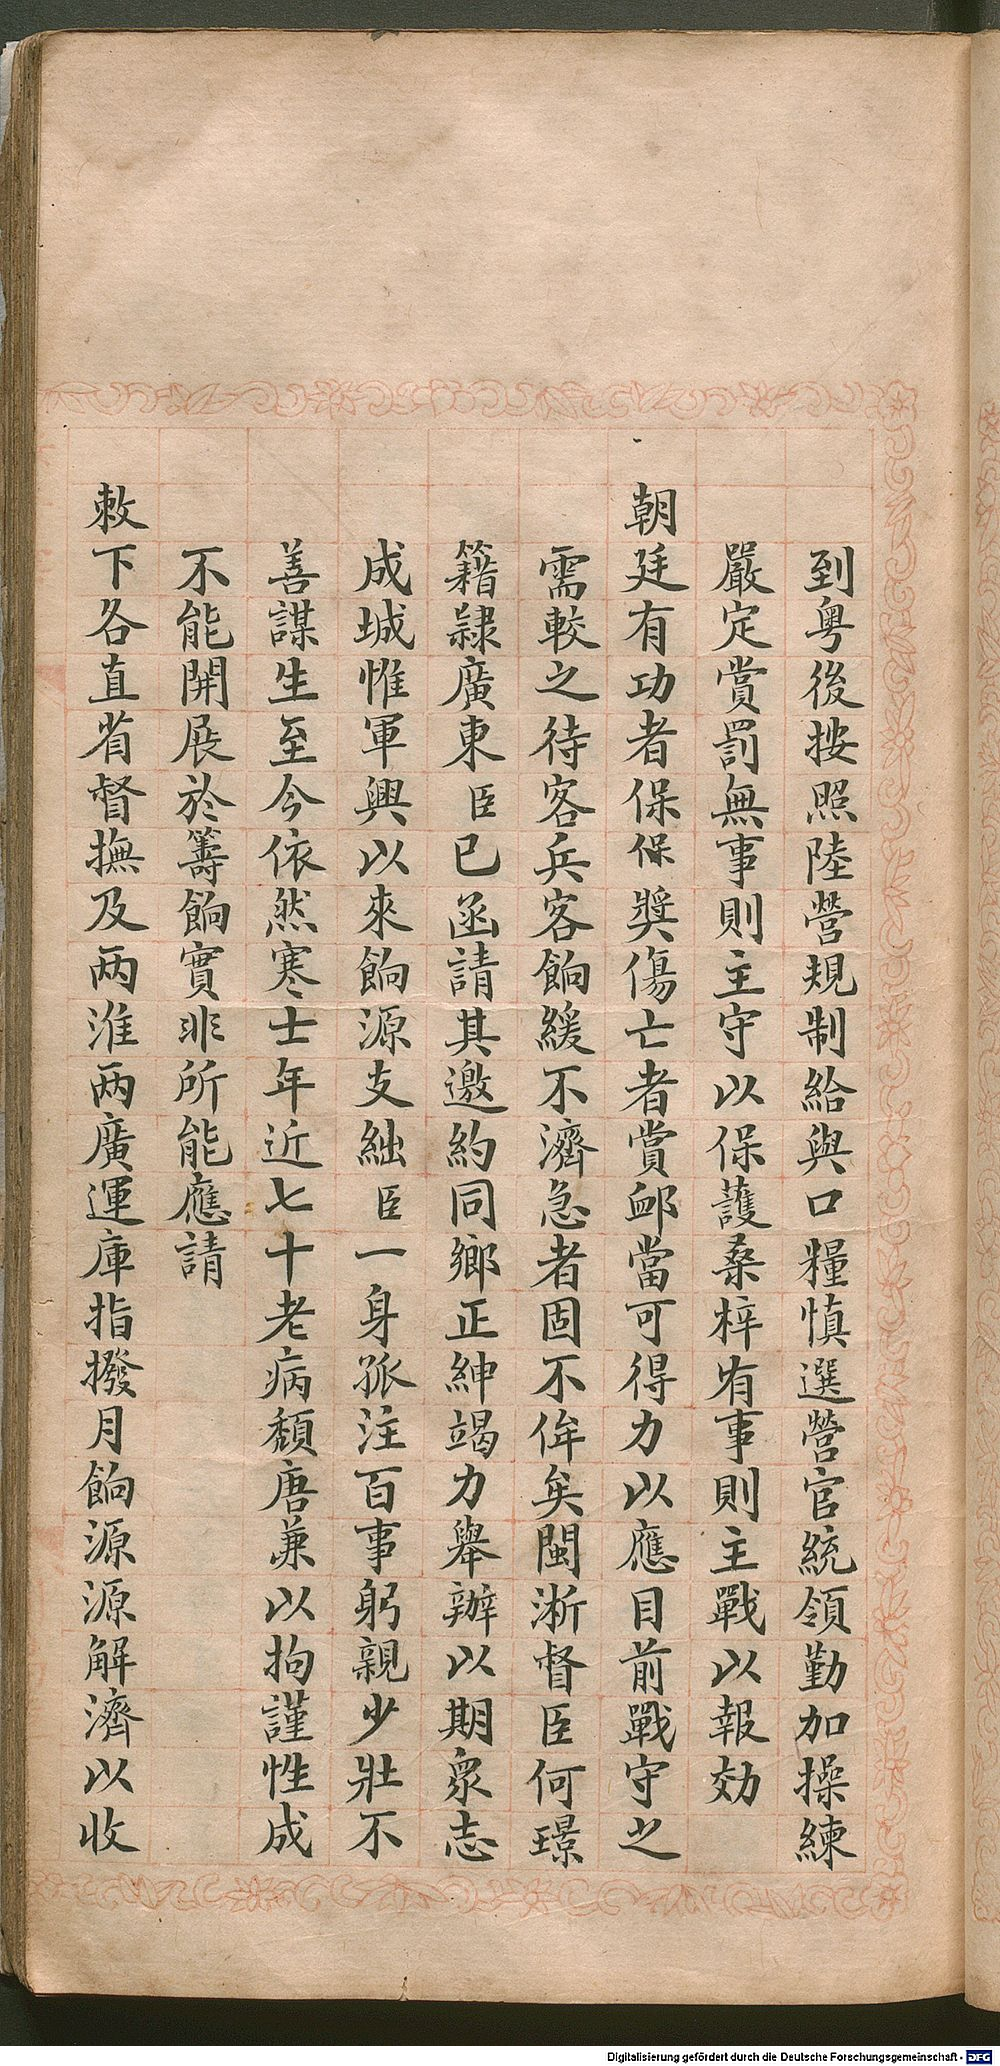 到粵後按照陸營規制給與口糧慎選營官統領勤加操練
嚴定賞罰無事則主守以保護桑梓有事則主戰以報効
朝廷有功者保保獎傷亡者賞卹當可得力以應目前戰守之
需較之待客兵客餉緩不濟急者固不侔矣閩淅督臣何璟
籍隸廣東臣已函請其邀約同鄉正紳竭力舉辦以期衆志
成城惟軍興以來餉源支絀臣一身孤注百事躬親少壯不
善謀生至今依然寒士年近七十老病頹唐兼以拘謹性成
不能開展於籌餉實非所能應請
敕下各直省督撫及兩淮兩廣運庫指撥月餉源源解濟以收
Digitalisierung gefördert durch die Deutsche Forschungsgemeinschaft - DFG